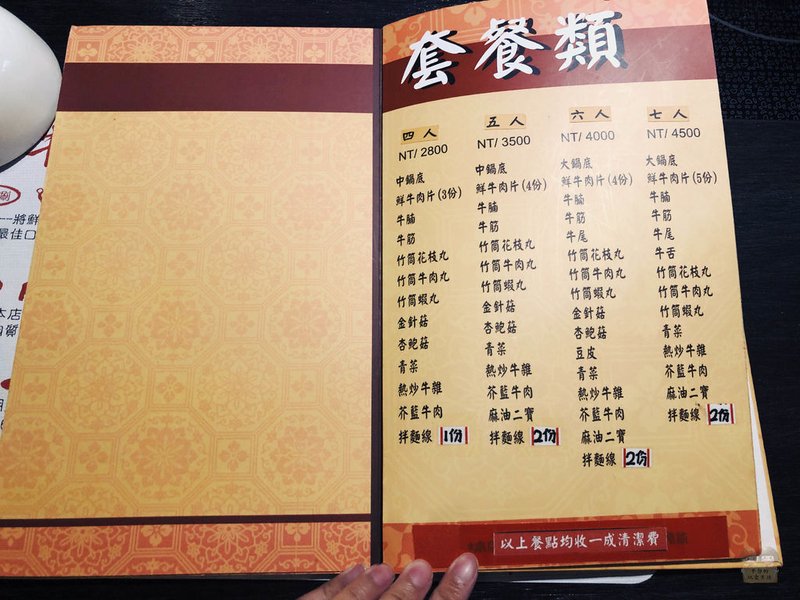 套餐類
四人
NT/ 2800
中鍋底
鮮牛肉片(3份)
牛腩
牛筋
竹筒花枝丸
竹筒牛肉丸
竹筒蝦丸
金針菇
杏鮑菇
青菜
熱炒牛雜
芥藍牛肉
拌麵線 1份
五人
NT/ 3500
中鍋底
鮮牛肉片(4份)
牛腩
牛筋
竹筒花枝丸
竹筒牛肉丸
竹筒蝦丸
金針菇
杏鮑菇
青菜
熱炒牛雜
芥藍牛肉
麻油二寶
拌麵線 2份
六人
NT/ 4000
大鍋底
鮮牛肉片(4份)
牛腩
牛筋
牛尾
竹筒花枝丸
竹筒牛肉丸
竹筒蝦丸
金針菇
杏鮑菇
豆皮
青菜
熱炒牛雜
芥藍牛肉
麻油二寶
拌麵線 2份
七人
NT/ 4500
大鍋底
鮮牛肉片(5份)
牛腩
牛筋
牛尾
牛舌
竹筒花枝丸
竹筒牛肉丸
竹筒蝦丸
青菜
熱炒牛雜
芥藍牛肉
拌麵線 2份
以上餐點均收一成清潔費
涮
--將鮮
最佳口
本店